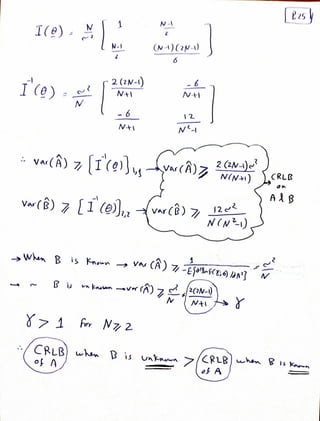 P.25
I(θ) = N/σ² [ 1   N-1/2
N-1/2   (N-1)(2N-1)/6 ]
I⁻¹(θ) = σ²/N [ 2(2N-1)/N+1   -6/N+1
-6/N+1   12/N²-1 ]
∴ var(Â) ≥ [I⁻¹(θ)]₁,₁ → var(Â) ≥ 2(2N-1)σ²/N(N+1)
CRLB on A & B
var(B̂) ≥ [I⁻¹(θ)]₂,₂ → var(B̂) ≥ 12σ²/N(N²-1)
→ When B is known → var(Â) ≥ 1/-E[∂² ln f(x;θ)/∂A²] = σ²/N
→ ~ B is unknown → var(Â) ≥ σ²/N · 2(2N-1)/N+1 → γ
γ > 1 for N ≥ 2
∴ CRLB of A when B is unknown > CRLB of A when B is known